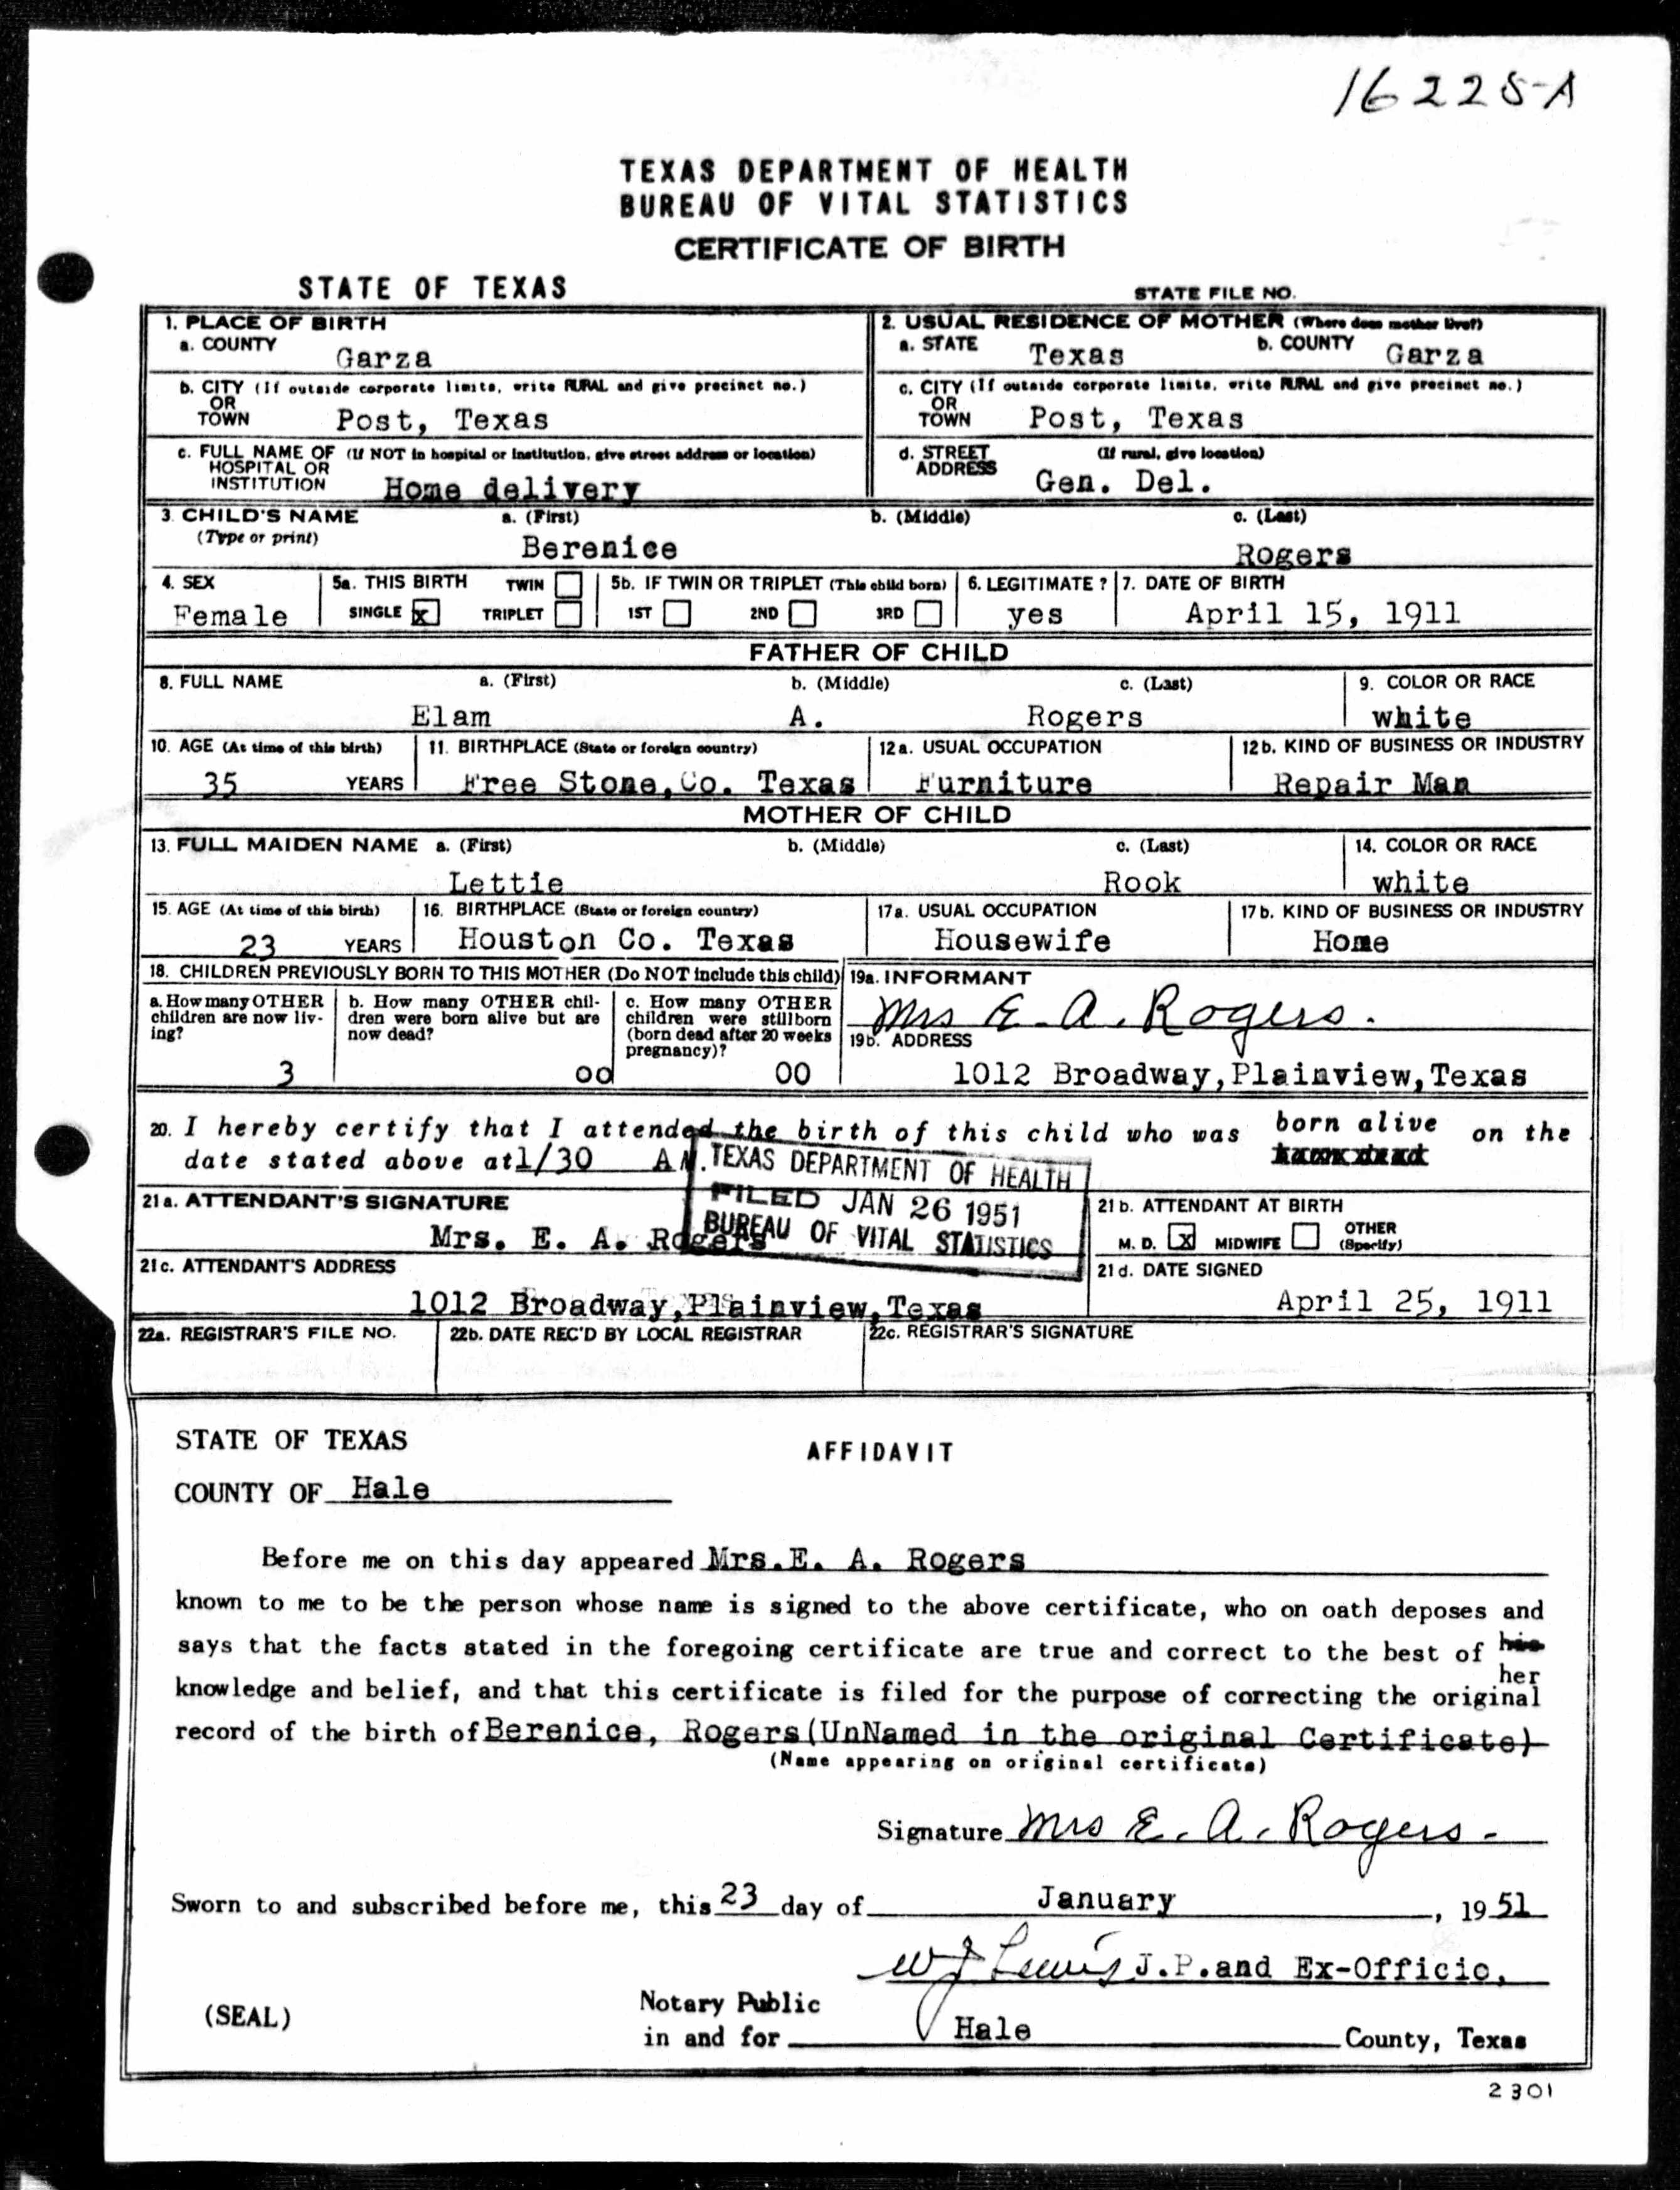 16225-A
TEXAS DEPARTMENT OF HEALTH
BUREAU OF VITAL STATISTICS
CERTIFICATE OF BIRTH
STATE OF TEXAS
STATE FILE NO.
1. PLACE OF BIRTH
a. COUNTY
Garza
2. USUAL RESIDENCE OF MOTHER (Where does mother live?)
a. STATE Texas b. COUNTY Garza
b. CITY (If outside corporate limits, write RURAL and give precinct no.)
OR
TOWN Post, Texas
c. CITY (If outside corporate limits, write RURAL and give precinct no.)
OR
TOWN Post, Texas
c. FULL NAME OF (If NOT in hospital or institution, give street address or location)
HOSPITAL OR
INSTITUTION Home delivery
d. STREET (If rural, give location)
ADDRESS Gen. Del.
3. CHILD'S NAME a. (First) b. (Middle) c. (Last)
(Type or print)
Berenice Rogers
4. SEX
Female
5a. THIS BIRTH TWIN
SINGLE x TRIPLET
5b. IF TWIN OR TRIPLET (This child born)
1ST 2ND 3RD
6. LEGITIMATE?
yes
7. DATE OF BIRTH
April 15, 1911
FATHER OF CHILD
8. FULL NAME a. (First) b. (Middle) c. (Last)
Elam A. Rogers
9. COLOR OR RACE
white
10. AGE (At time of this birth)
35 YEARS
11. BIRTHPLACE (State or foreign country)
Free Stone, Co. Texas
12a. USUAL OCCUPATION
Furniture
12b. KIND OF BUSINESS OR INDUSTRY
Repair Man
MOTHER OF CHILD
13. FULL MAIDEN NAME a. (First) b. (Middle) c. (Last)
Lettie Rook
14. COLOR OR RACE
white
15. AGE (At time of this birth)
23 YEARS
16. BIRTHPLACE (State or foreign country)
Houston Co. Texas
17a. USUAL OCCUPATION
Housewife
17b. KIND OF BUSINESS OR INDUSTRY
Home
18. CHILDREN PREVIOUSLY BORN TO THIS MOTHER (Do NOT include this child)
a. How many OTHER
children are now liv-
ing?
3
b. How many OTHER chil-
dren were born alive but are
now dead?
oo
c. How many OTHER
children were stillborn
(born dead after 20 weeks
pregnancy)?
00
19a. INFORMANT
Mrs E. A. Rogers.
19b. ADDRESS
1012 Broadway, Plainview, Texas
20. I hereby certify that I attended the birth of this child who was born alive on the
date stated above at 1/30 A M.
TEXAS DEPARTMENT OF HEALTH
FILED JAN 26 1951
BUREAU OF VITAL STATISTICS
21a. ATTENDANT'S SIGNATURE
Mrs. E. A. Rogers
21b. ATTENDANT AT BIRTH
M. D. x MIDWIFE OTHER
(Specify)
21c. ATTENDANT'S ADDRESS
1012 Broadway, Plainview, Texas
21d. DATE SIGNED
April 25, 1911
22a. REGISTRAR'S FILE NO.
22b. DATE REC'D BY LOCAL REGISTRAR
22c. REGISTRAR'S SIGNATURE
STATE OF TEXAS
AFFIDAVIT
COUNTY OF Hale
Before me on this day appeared Mrs. E. A. Rogers
known to me to be the person whose name is signed to the above certificate, who on oath deposes and
says that the facts stated in the foregoing certificate are true and correct to the best of his
her
knowledge and belief, and that this certificate is filed for the purpose of correcting the original
record of the birth of Berenice, Rogers (UnNamed in the original Certificate)
(Name appearing on original certificate)
Signature Mrs E. A. Rogers.
Sworn to and subscribed before me, this 23 day of January, 19 51
W J Lewis J.P. and Ex-Officio,
Notary Public
(SEAL)
in and for Hale County, Texas
2301